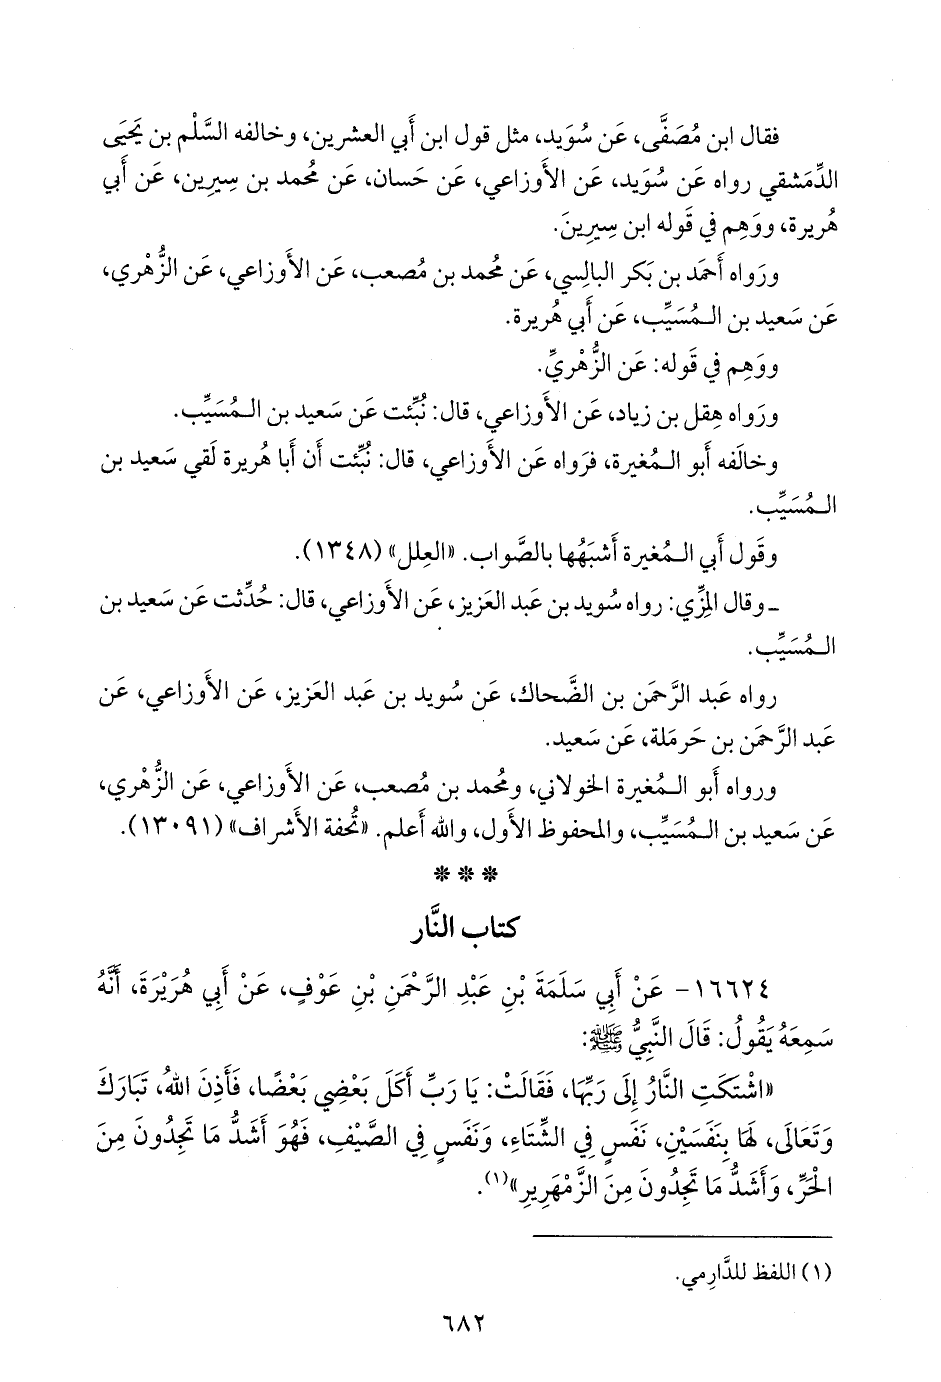 فقال ابن مُصَفَّى، عَن سُوَيد، مثل قول ابن أَبي العشرين، وخالفه السَّلْم بن يَحيَى
الدِّمَشقي رواه عَن سُوَيد، عَن الأَوزاعي، عَن حَسان، عَن مُحمد بن سِيرين، عَن أَبي
هُريرة، ووَهِم في قَوله ابن سِيرينَ.
ورَواه أَحمَد بن بَكر البالِسي، عَن مُحمد بن مُصعب، عَن الأَوزاعي، عَن الزُّهْري،
عَن سَعيد بن الـمُسَيِّب، عَن أَبي هُريرة.
ووَهِم في قَوله: عَن الزُّهْريِّ.
ورَواه هِقل بن زياد، عَن الأَوزاعي، قال: نُبِّئت عَن سَعيد بن الـمُسَيِّب.
وخالَفه أَبو الـمُغيرة، فرَواه عَن الأَوزاعي، قال: نُبِّئت أَن أَبا هُريرة لَقي سَعيد بن
الـمُسَيِّب.
وقَول أَبي الـمُغيرة أَشبَهُها بالصَّواب. «العِلل» (١٣٤٨).
ـ وقال المِزِّي: رواه سُويد بن عَبد العَزيز، عَن الأَوزاعي، قال: حُدِّثت عَن سَعيد بن
الـمُسَيِّب.
رواه عَبد الرَّحمَن بن الضَّحاك، عَن سُويد بن عَبد العَزيز، عَن الأَوزاعي، عَن
عَبد الرَّحمَن بن حَرمَلة، عَن سَعيد.
ورواه أَبو الـمُغيرة الخولاني، ومُحمد بن مُصعب، عَن الأَوزاعي، عَن الزُّهْري،
عَن سَعيد بن الـمُسَيِّب، والمحفوظ الأَول، والله أَعلم. «تُحفة الأَشراف» (١٣٠٩١).
* * *
كتاب النَّار
١٦٦٢٤- عَنْ أَبِي سَلَمَةَ بْنِ عَبْدِ الرَّحْمَنِ بْنِ عَوْفٍ، عَنْ أَبِي هُرَيْرَةَ، أَنَّهُ
سَمِعَهُ يَقُولُ: قَالَ النَّبِيُّ ﷺ:
«اشْتَكَتِ النَّارُ إِلَى رَبِّهَا، فَقَالَتْ: يَا رَبِّ أَكَلَ بَعْضِي بَعْضًا، فَأَذِنَ اللهُ، تَبَارَكَ
وَتَعَالَى، لَهَا بِنَفَسَيْنِ، نَفَسٍ فِي الشِّتَاءِ، وَنَفَسٍ فِي الصَّيْفِ، فَهُوَ أَشَدُّ مَا تَجِدُونَ مِنَ
الْحَرِّ، وَأَشَدُّ مَا تَجِدُونَ مِنَ الزَّمْهَرِيرِ»(١).
(١) اللفظ للدَّارِمي.
٦٨٢